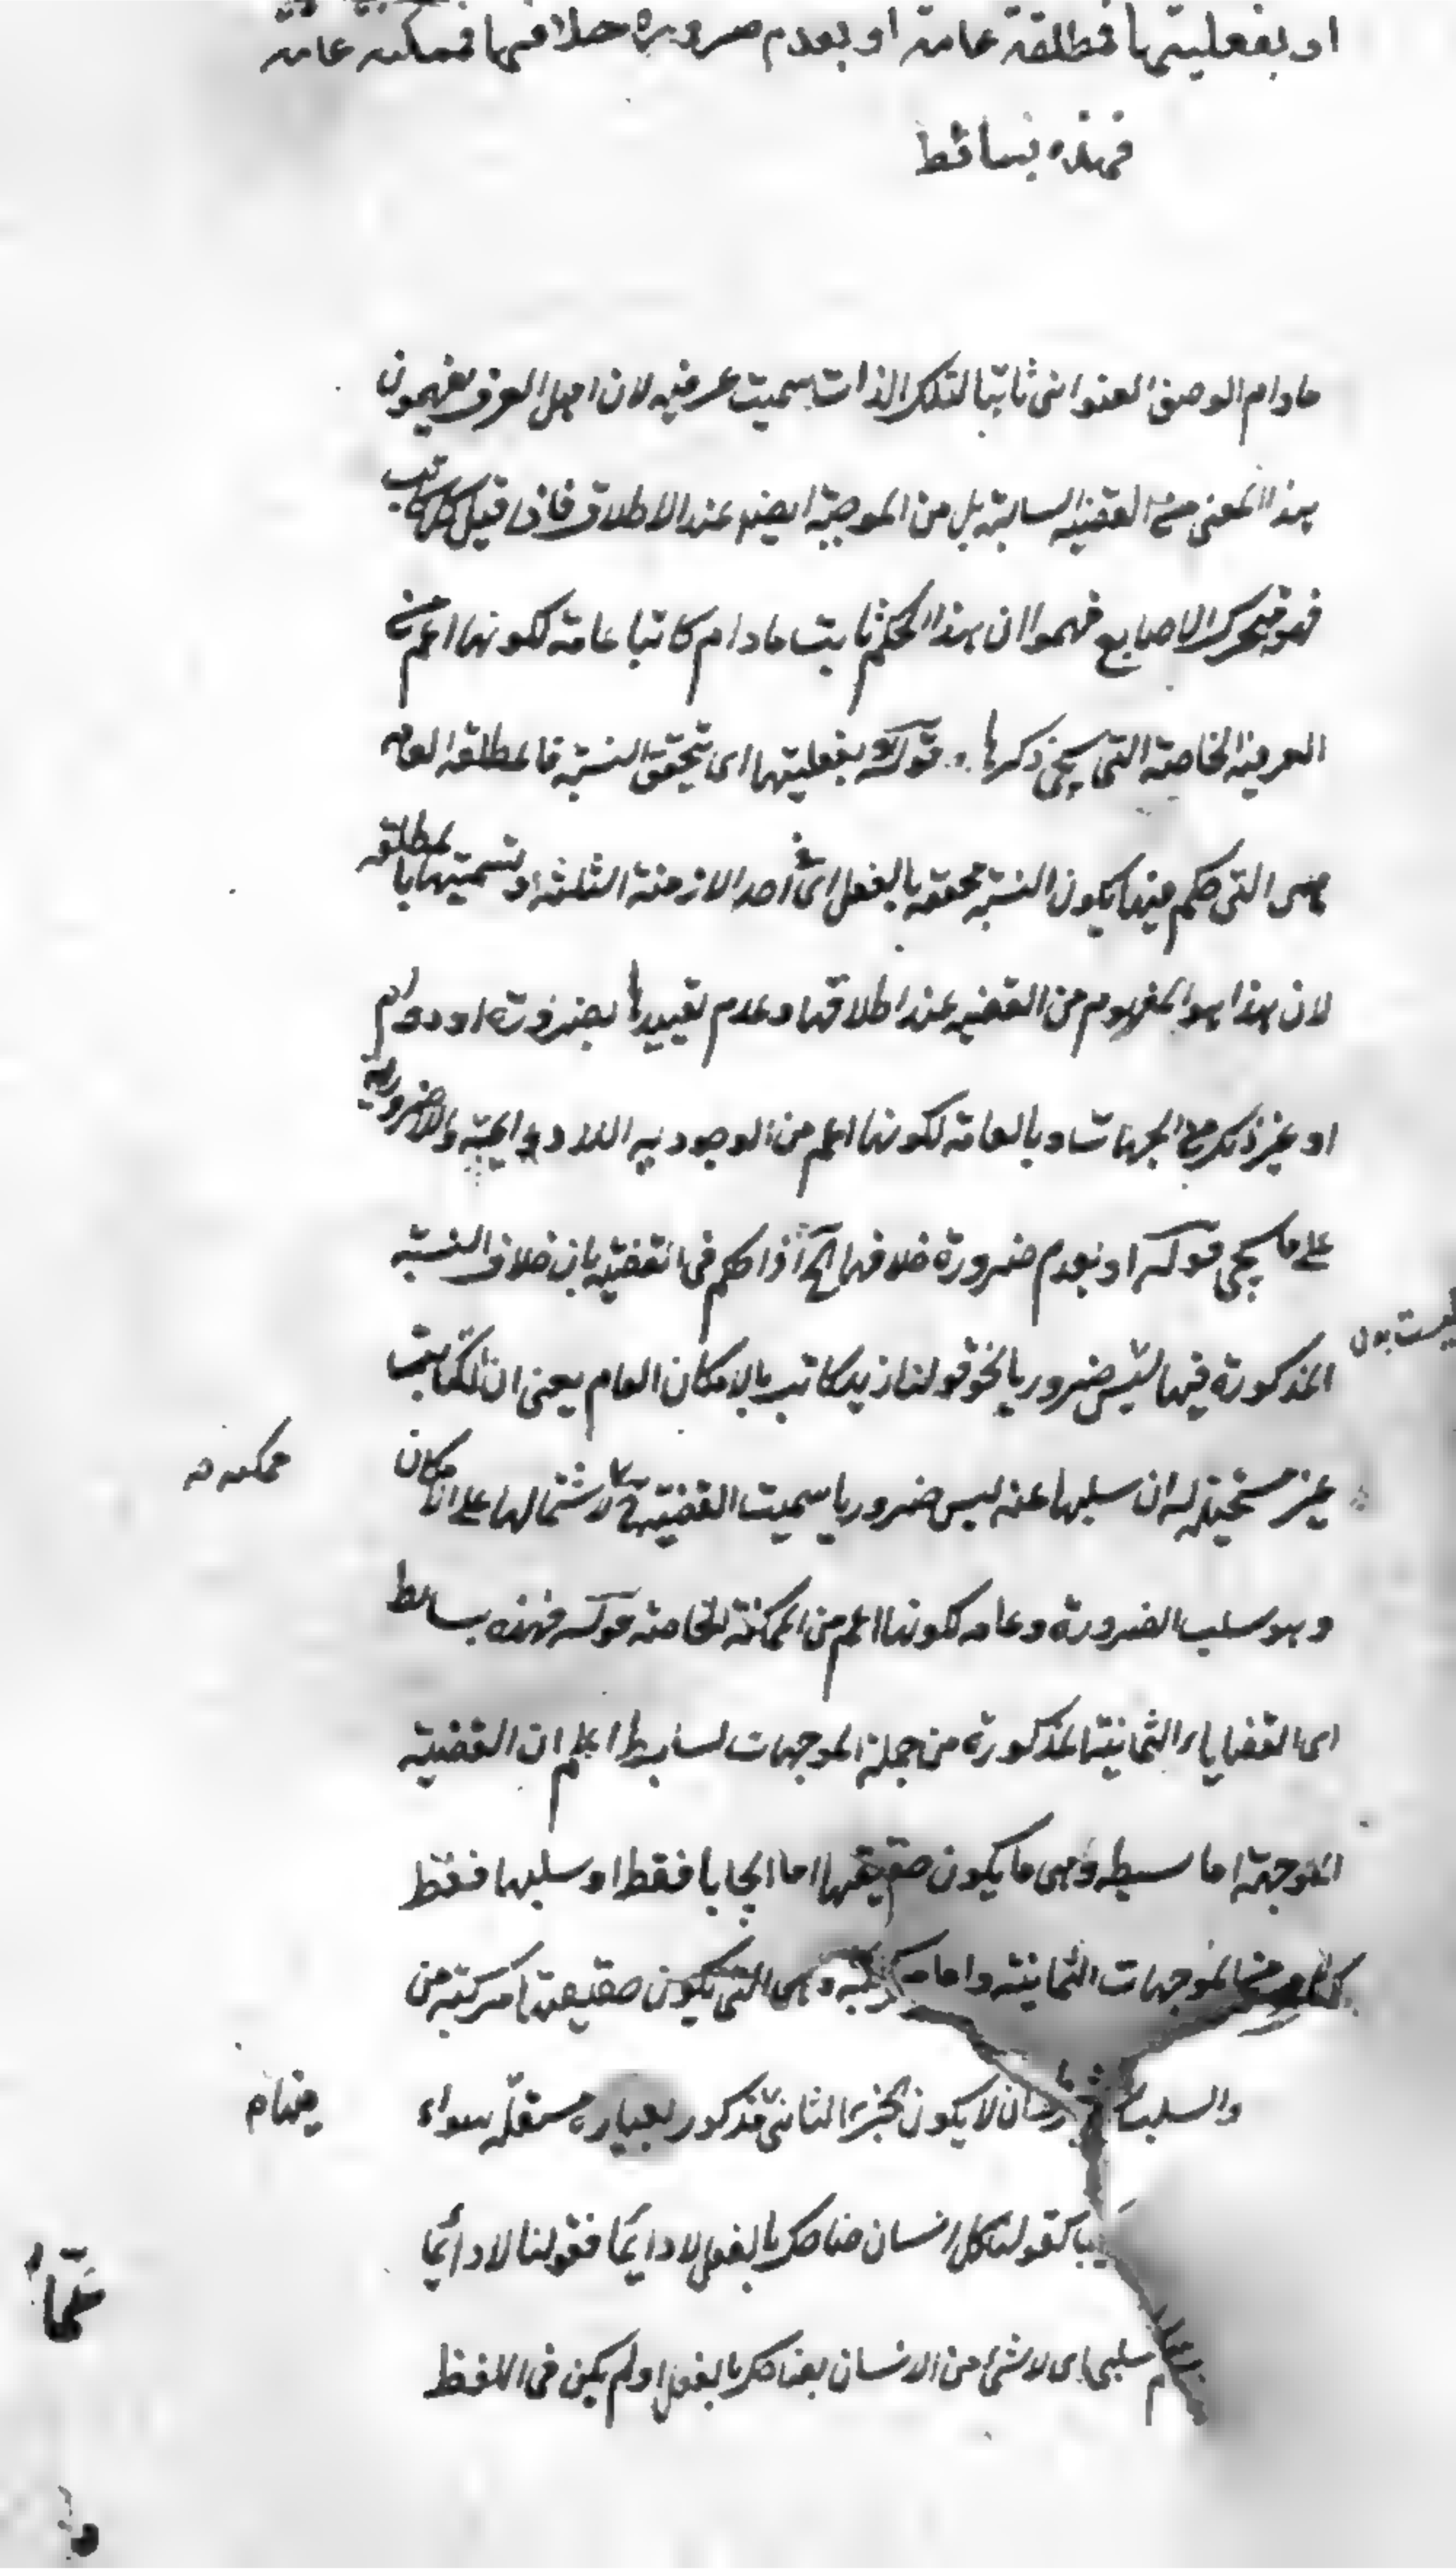 او بفعليتها فمطلقة عامة او بعدم ضرورة خلافها فممكنة عامة
فهذه بسائط
مادام الوصف العنوانى ثابتا لتلك الذات سميت عرفيه لان اهل العرف يفهمون
هذا المعنى من القضيه السالبة بل من الموجبة ايضا عند الاطلاق فاذا قيل كل كاتب
فهو متحرك الاصابع فهموا ان هذا الحكم ثابت مادام كاتبا عامة لكونها اعم من
العرفية الخاصة التى سيجئ ذكرها قوله بفعليتها اى تحقق النسبة فالمطلقه العامه
هى التى حكم فيها بكون النسبة محققه بالفعل اى فى احد الازمنة الثلثه و تسميتها بالمطلقه
لان هذا هو المفهوم من القضيه عند اطلاقها وعدم تقييدها بضرورة او دوام
او غير ذلك من الجهات وبالعامة لكونها اعم من الوجوديه اللادوايمية واللاضروريه
على ما سيجئ قوله او بعدم ضرورة خلافها الخ اذا حكم فى القضية بان خلاف النسبة
المذكورة فيها ليس ضروريا نحو قولنا زيد كاتب بالامكان العام يعنى ان الكتابت
غير مستحيلة له ان سلبها عنه ليس ضروريا سميت القضية لاشتمالها على الامكان
ممكنه
وهو سلب الضرورة وعامه لكونها اعم من الممكنة الخاصة قوله فهذه بسائط
اى القضايا الثمانية المذكورة من جملة الموجهات بسايط اعلم ان القضية
الموجهة اما بسيطه وهى ما يكون حقيقتها اما ايجابا فقط او سلبها فقط
كما من الموجهات الثمانية واما مركبه وهى التى تكون حقيقتها مركبة من
والسلب ان لا يكون الجزء الثانى مذكور بعباره مستقلة سواء
كقولنا كل انسان ضاحك بالفعل لا دائما فقولنا لا دائما
سلبى اى لا شئ من الانسان بضاحك بالفعل او لم يكن فى اللفظ